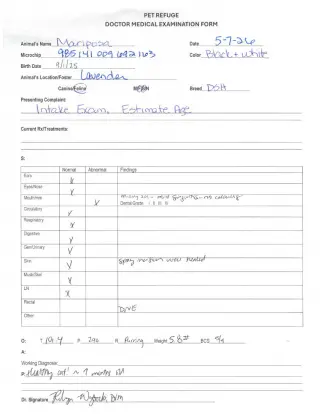 PET REFUGE
DOCTOR MEDICAL EXAMINATION FORM
Animal's Name Mariposa Date 5-7-26
Microchip 985141009692163 Color Black + White
Birth Date 9/1/25
Animal's Location/Foster Lavender
Canine/Feline M/F/S/N Breed DSH
Presenting Complaint:
Intake Exam, Estimate Age
Current Rx/Treatments:
S:
Normal Abnormal Findings
Ears
Eyes/Nose
Mouth/Nose mild gingivitis - no
Dental Grade: I II III IV
Circulatory
Respiratory
Digestive
Genit/Urinary
Skin Spay incision well healed
Musk/Skel
LN
Rectal DNE
Other
O: T P R Purring Weight 5.8# BCS
A:
Working Diagnosis:
P: Healthy cat! ~ 7 months old
Dr. Signature